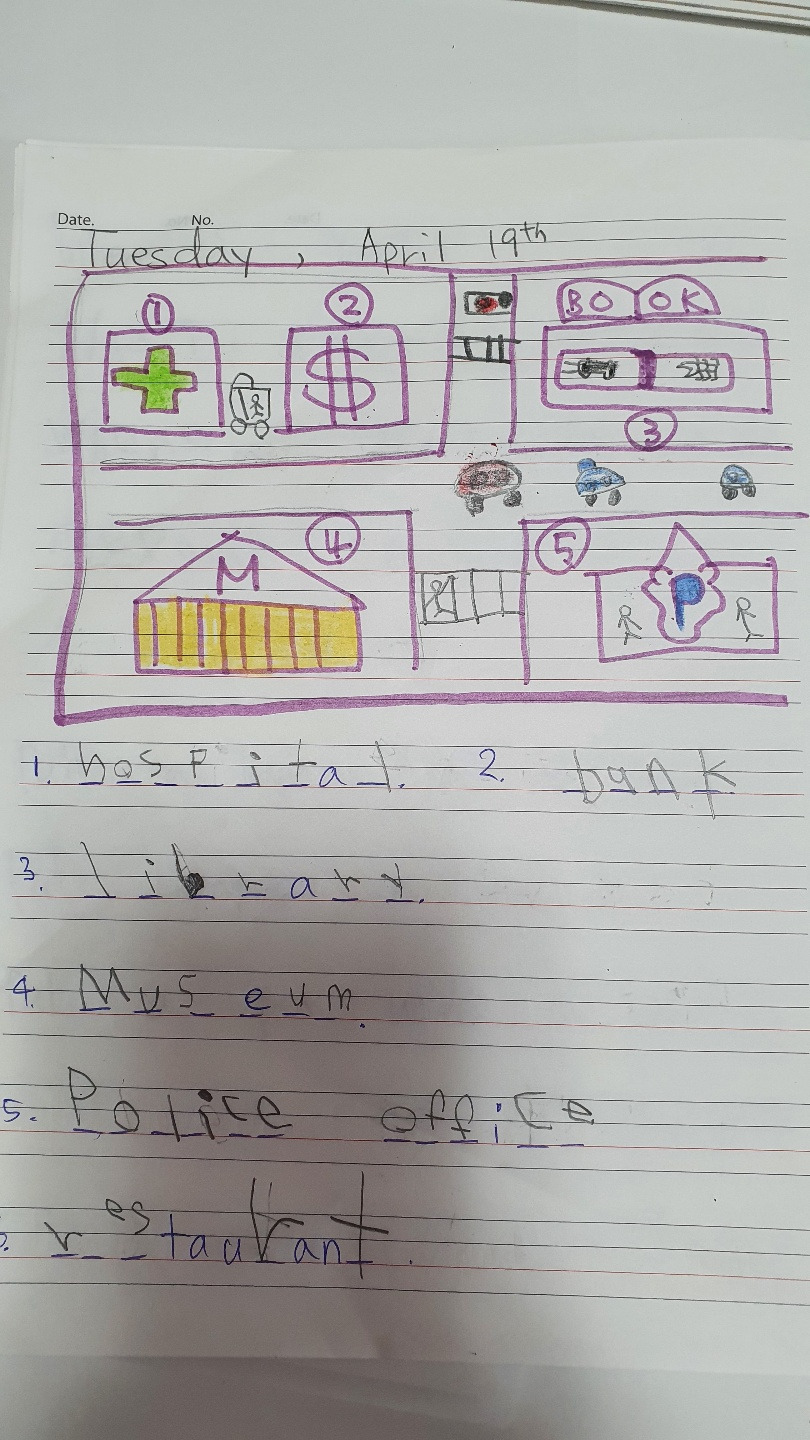 Date. No.
Tuesday, April 19th
① ② BO OK
$
③
④ ⑤
M P
1. hospital. 2. bank
3. library.
4. Museum.
5. Police office
restaurant.